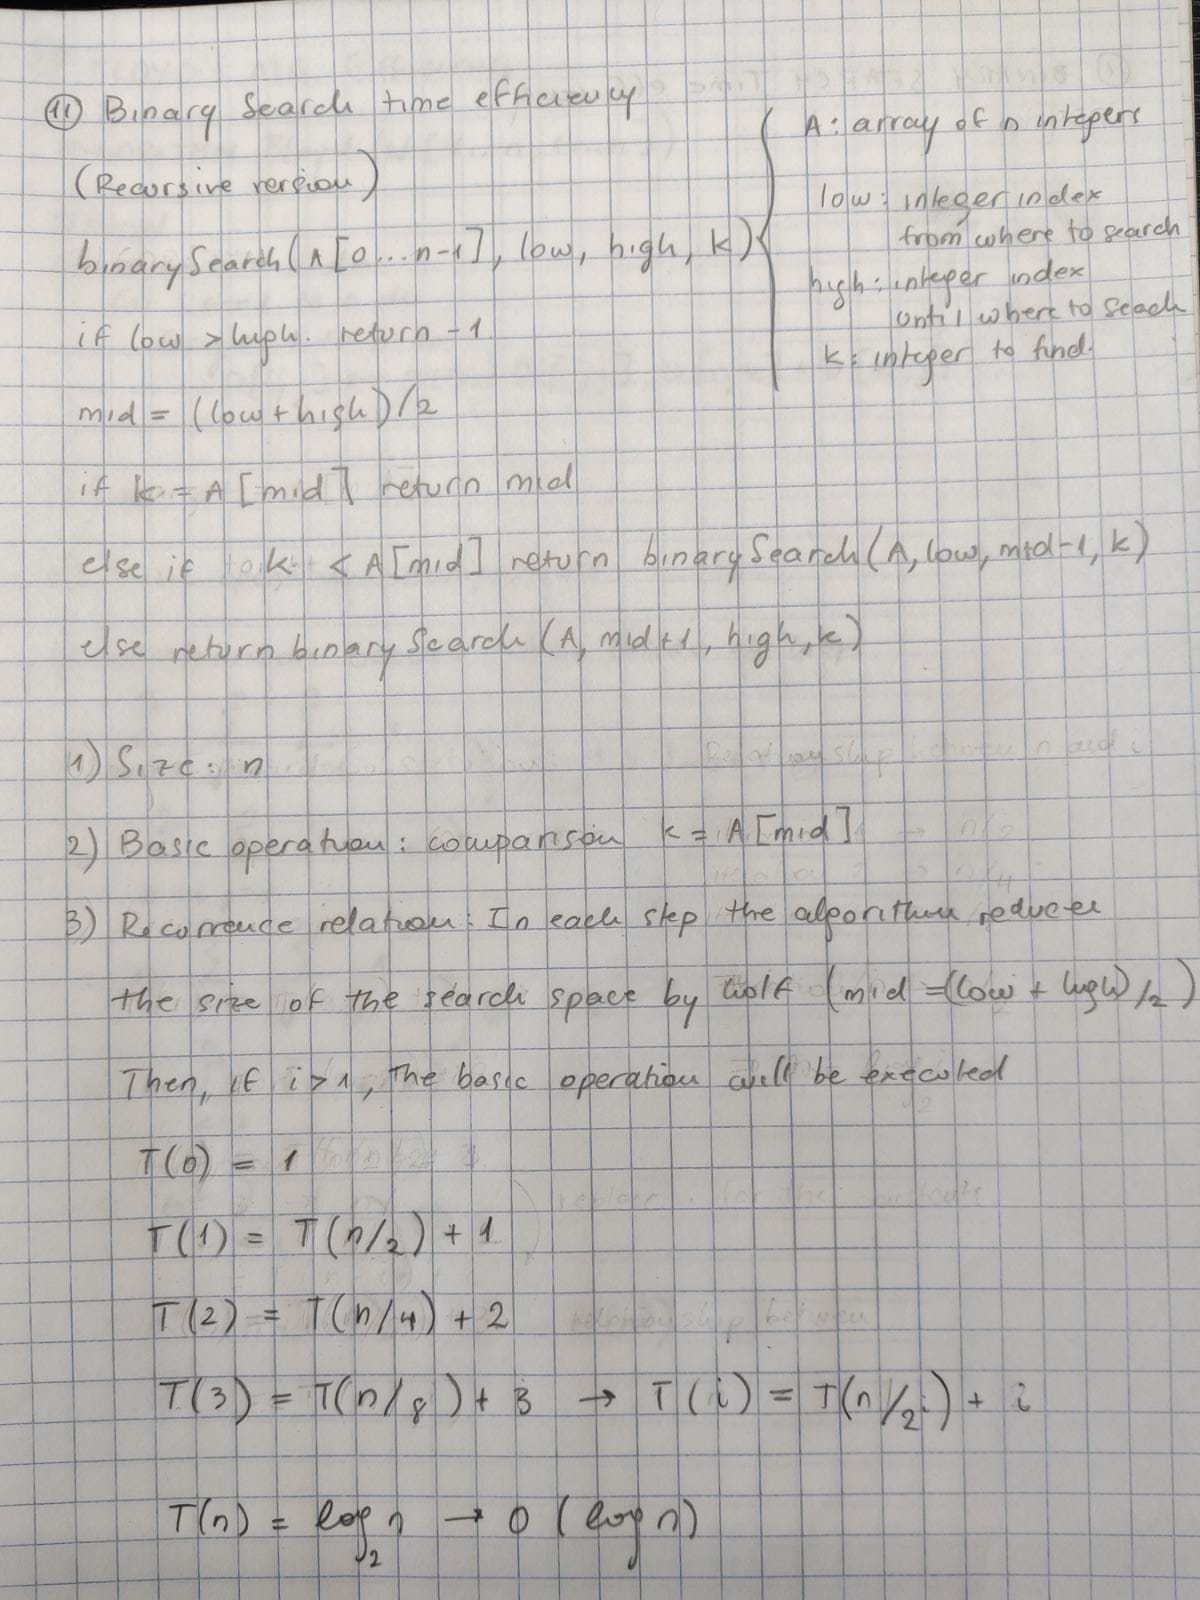 11 Binary Search time efficiency
(Recursive version)
binarySearch(A[0...n-1], low, high, k)
A: array of n integers
low: integer index
from where to search
high: integer index
until where to seach
k: integer to find.
if low > high. return -1
mid = (low + high)/2
if k = A[mid] return mid
else if k < A[mid] return binarySearch(A, low, mid-1, k)
else return binarySearch(A, mid+1, high, k)
1) Size: n
2) Basic operation: comparison k = A[mid]
3) Recurrence relation: In each step the algorithm reduces
the size of the search space by half (mid = (low + high)/2)
Then, if i > 1, the basic operation will be executed
T(0) = 1
T(1) = T(n/2) + 1
T(2) = T(n/4) + 2
T(3) = T(n/8) + 3 → T(i) = T(n/2i) + i
T(n) = log₂ n → O(log n)